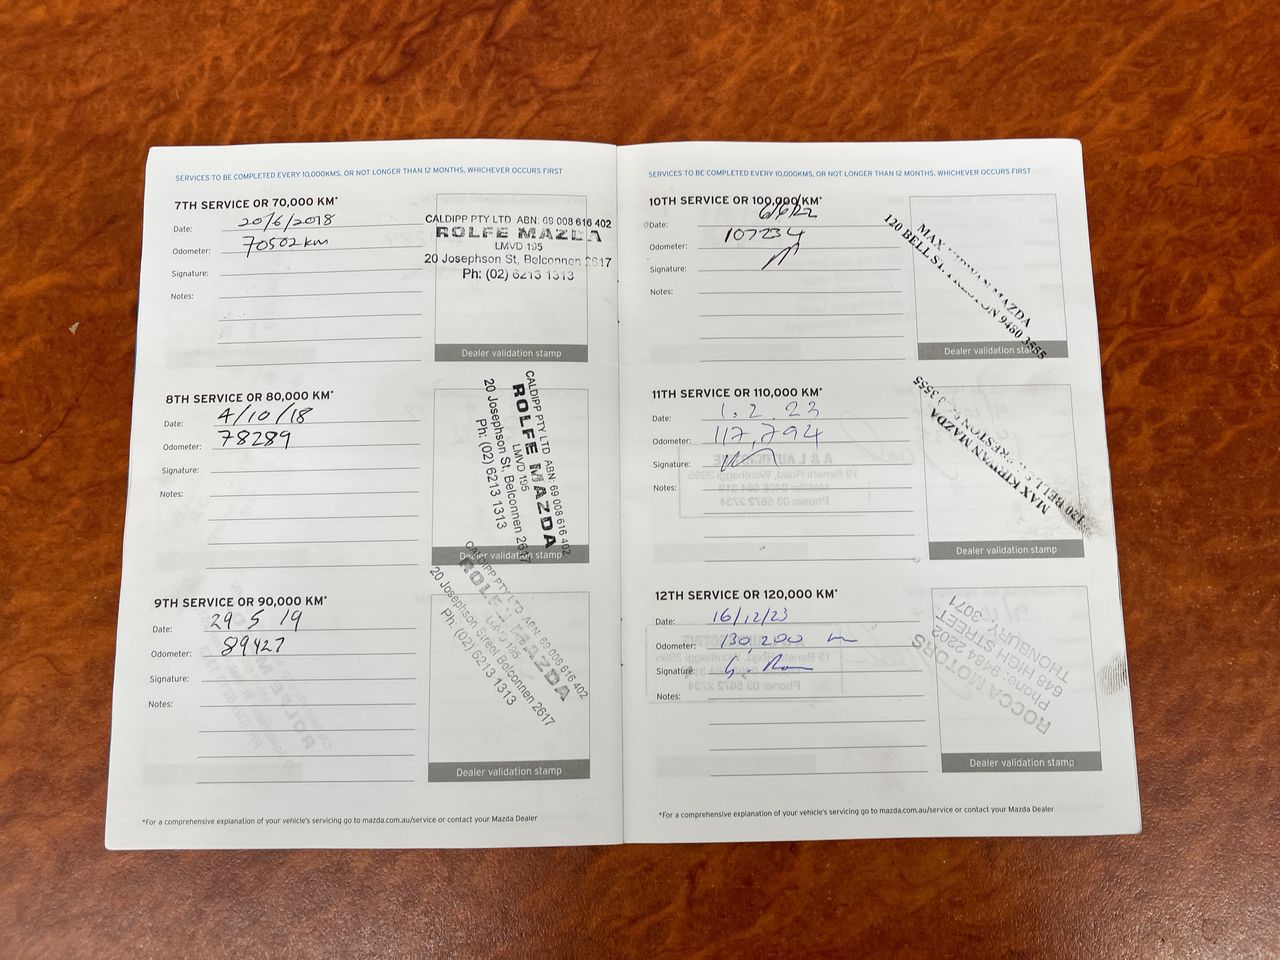 SERVICES TO BE COMPLETED EVERY 10,000KMS, OR NOT LONGER THAN 12 MONTHS, WHICHEVER OCCURS FIRST
7TH SERVICE OR 70,000 KM*
Date: 20/6/2018
Odometer: 70502 km
Signature:
Notes:
CALDIPP PTY LTD ABN: 69 008 616 402
ROLFE MAZDA
LMVD 195
20 Josephson St, Belconnen 2617
Ph: (02) 6213 1313
Dealer validation stamp
8TH SERVICE OR 80,000 KM*
Date: 4/10/18
Odometer: 78289
Signature:
Notes:
CALDIPP PTY LTD ABN: 69 008 616 402
ROLFE MAZDA
LMVD 195
20 Josephson St, Belconnen 2617
Ph: (02) 6213 1313
Dealer validation stamp
9TH SERVICE OR 90,000 KM*
Date: 29 5 19
Odometer: 89427
Signature:
Notes:
CALDIPP PTY LTD ABN: 69 008 616 402
ROLFE MAZDA
LMVD 195
20 Josephson Street Belconnen 2617
Ph: (02) 6213 1313
Dealer validation stamp
*For a comprehensive explanation of your vehicle's servicing go to mazda.com.au/service or contact your Mazda Dealer
SERVICES TO BE COMPLETED EVERY 10,000KMS, OR NOT LONGER THAN 12 MONTHS, WHICHEVER OCCURS FIRST
10TH SERVICE OR 100,000 KM*
Date: 6/6/22
Odometer: 107234
Signature:
Notes:
MAX KIRWAN MAZDA
120 BELL ST. PRESTON 9480 3555
Dealer validation stamp
11TH SERVICE OR 110,000 KM*
Date: 1.2.23
Odometer: 117,794
Signature:
Notes:
MAX KIRWAN MAZDA
120 BELL ST. PRESTON 9480 3555
Dealer validation stamp
12TH SERVICE OR 120,000 KM*
Date: 16/12/23
Odometer: 130,200 km
Signature:
Notes:
ROCCA MOTORS
Phone: 9484 2202
648 HIGH STREET
THONBURY, 3071
Dealer validation stamp
*For a comprehensive explanation of your vehicle's servicing go to mazda.com.au/service or contact your Mazda Dealer